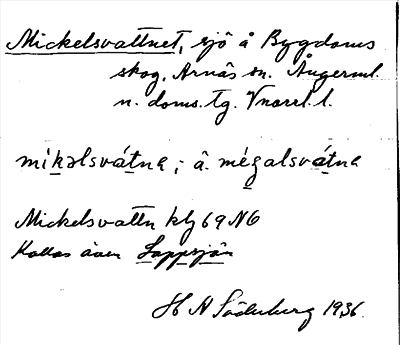 Mickelsvattnet, sjö å Bygdoms
skog, Arnäs sn. Ångerml.
n. doms. tg. V
míkəlsvátna; å. mégalsvátna
Mickelsvattn kbl 69 NO
Kallas även Lappsjön
H N Söderberg 1936.